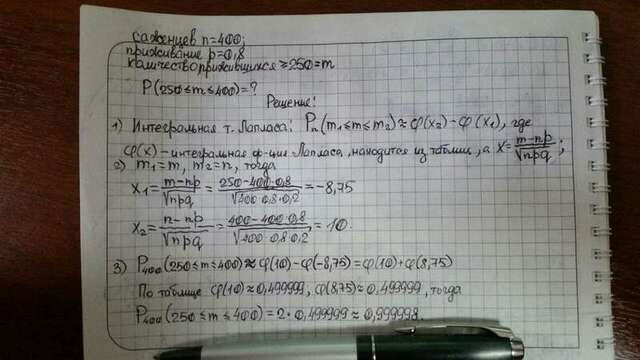 саженцев n=400;
приживание p=0,8
количество прижившихся ≥250=m
P(250≤m≤400)=?
Решение:
1) Интегральная т. Лапласа: Pn(m₁≤m≤m₂)≈φ(x₂)-φ(x₁), где
φ(x)-интегральная ф-ция Лапласа, находится из таблиц, а x=(m-np)/√npq;
2) m₁=m, m₂=n, тогда
x₁=(m-np)/√npq=(250-400·0,8)/√400·0,8·0,2=-8,75
x₂=(n-np)/√npq=(400-400·0,8)/√400·0,8·0,2=10.
3) P₄₀₀(250≤m≤400)≈φ(10)-φ(-8,75)=φ(10)+φ(8,75)
По таблице φ(10)≈0,499999, φ(8,75)≈0,499999, тогда
P₄₀₀(250≤m≤400)=2·0,499999≈0,999998.